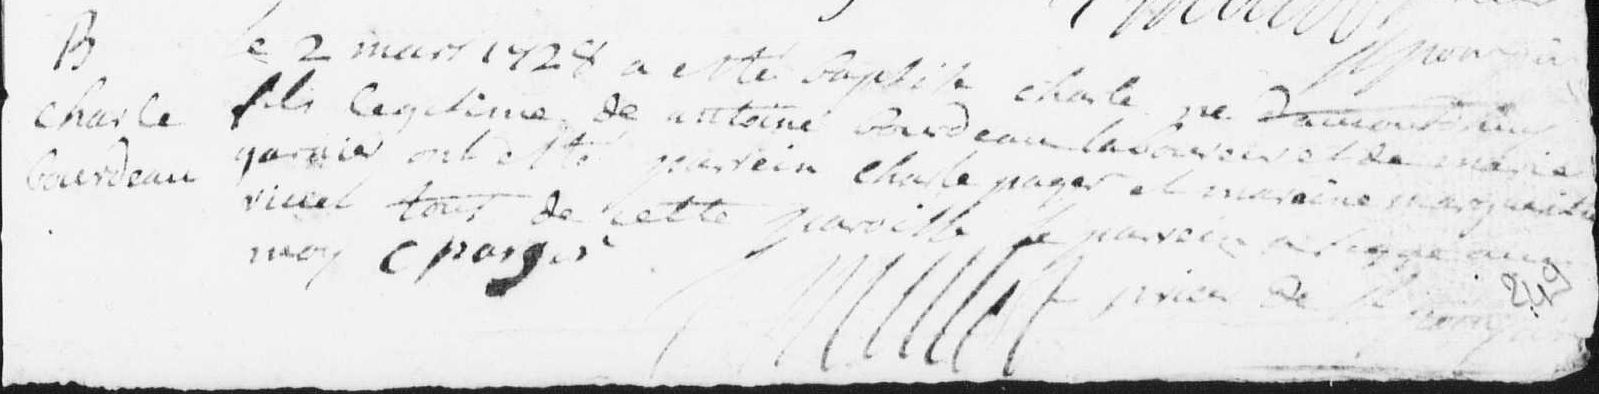 B
charle
bourdeau
le 2 mars 1728 a esté baptisé charle ne
fils legitime de antoine bourdeau laboureur et de marie
garnier ont esté parrein charle pager et mareine marguerite
vivel tout de cette paroisse le parrein a signe avec
moy C pager
prieur de St
249